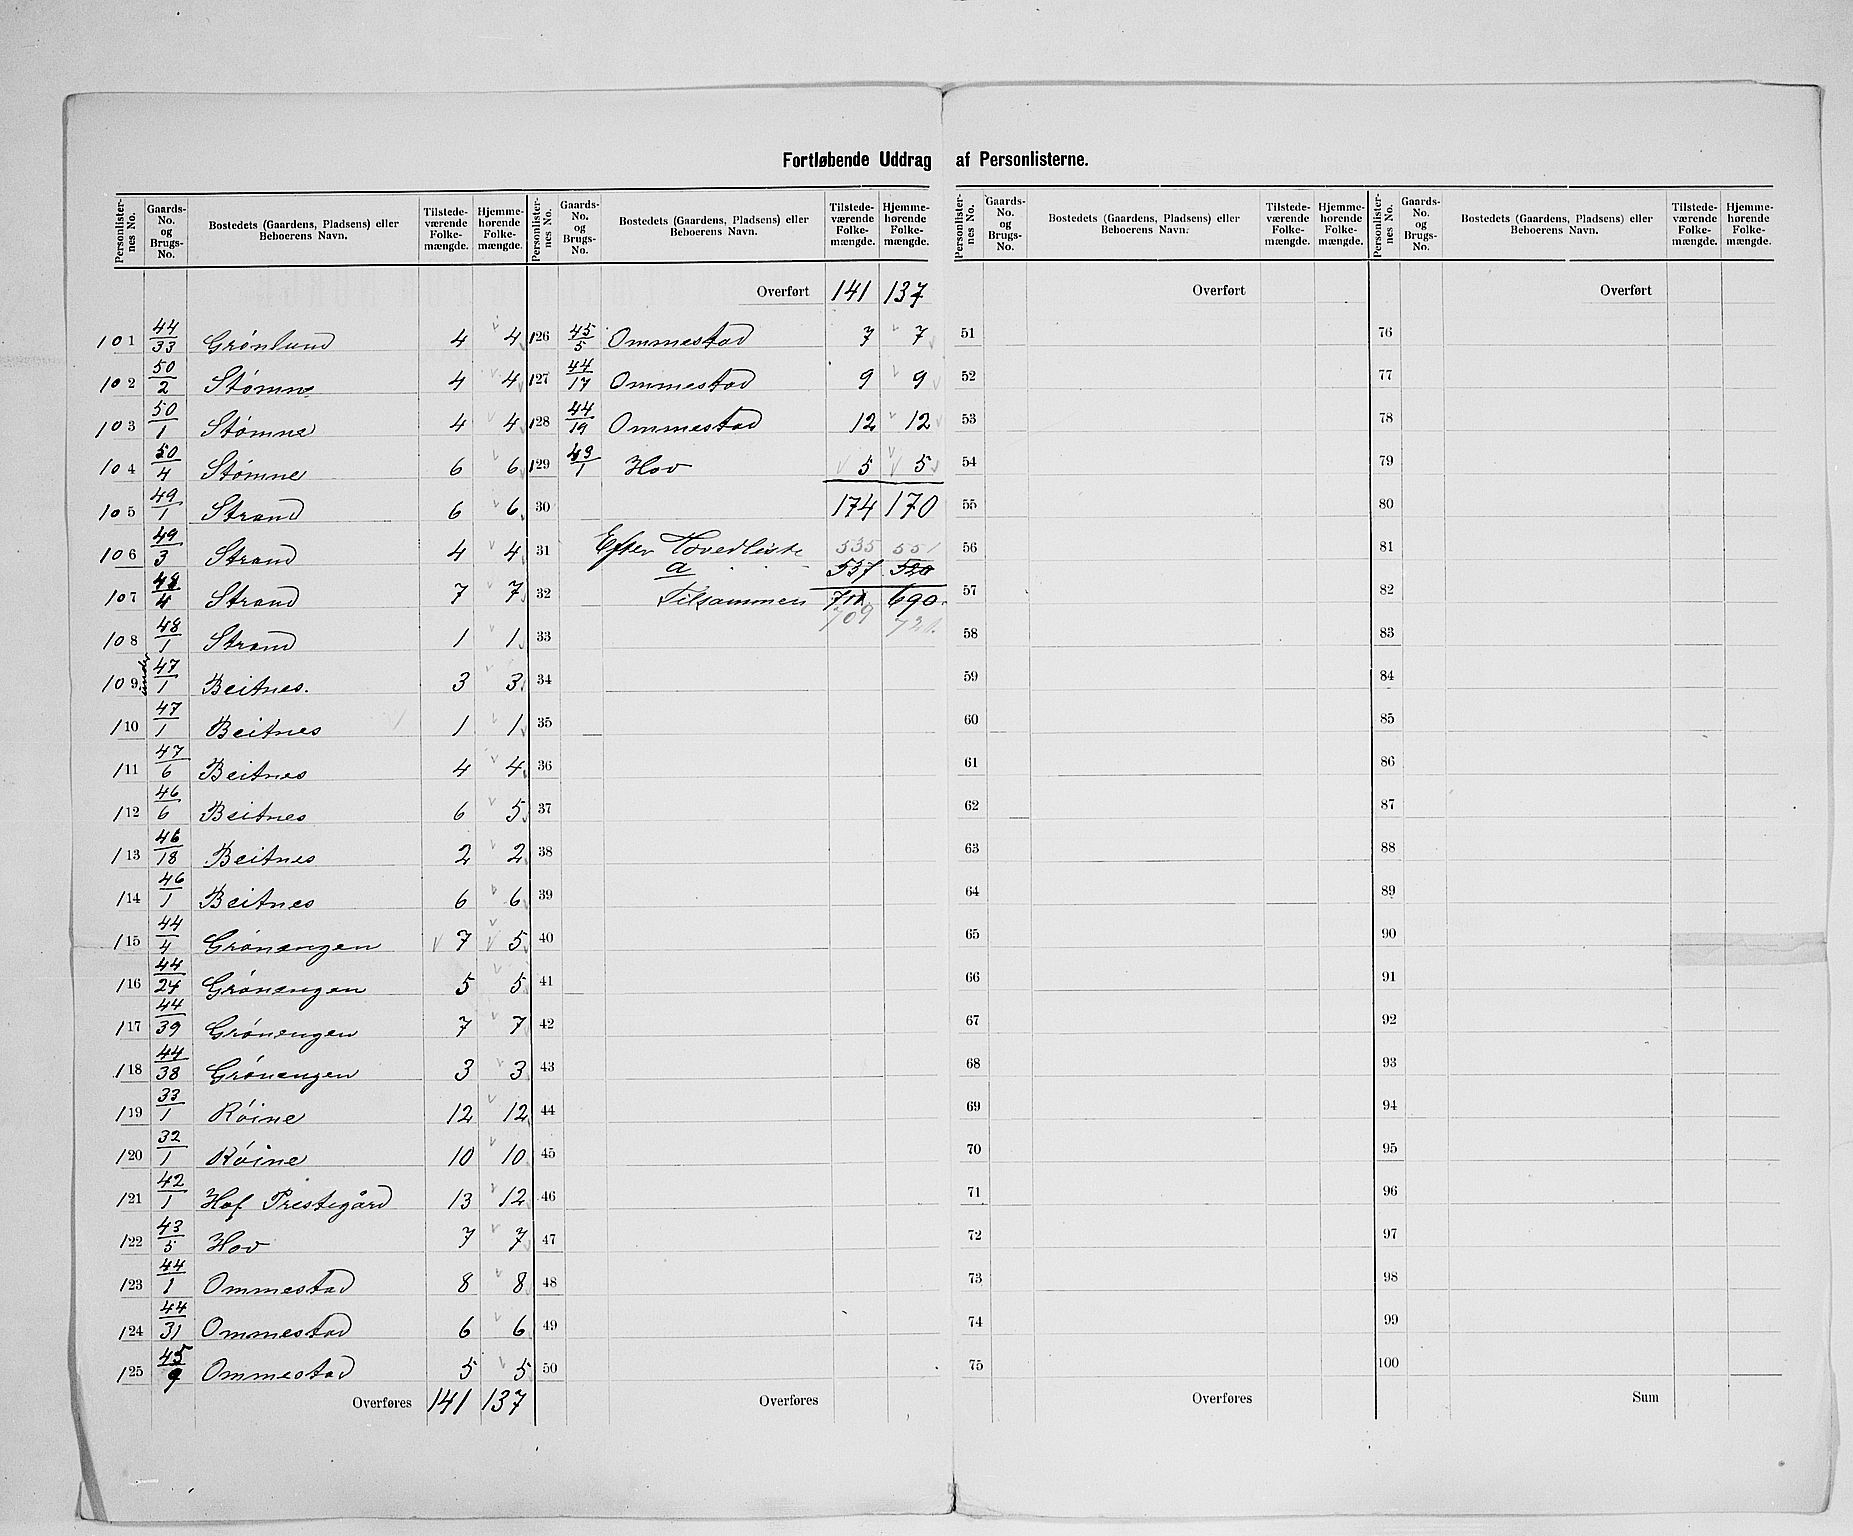 Fortløbende Uddrag af Personlisterne.
Personlister-nes No. | Gaards-No. og Brugs-No. | Bostedets (Gaardens, Pladsens) eller Beboerens Navn. | Tilstede-værende Folke-mængde. | Hjemme-hørende Folke-mængde.
101 44/33 Grønlund 4 4
102 50/2 Stømne 4 4
103 50/1 Stømne 4 4
104 50/4 Stømne 6 6
105 49/1 Strand 6 6
106 49/3 Strand 4 4
107 48/4 Strand 7 7
108 48/1 Strand 1 1
109 under 47/1 Beitnes. 3 3
110 47/1 Beitnes 1 1
111 47/6 Beitnes 4 4
112 46/6 Beitnes 6 5
113 46/18 Beitnes 2 2
114 46/1 Beitnes 6 6
115 44/4 Grønængen 7 5
116 44/24 Grønængen 5 5
117 44/39 Grønengen 7 7
118 44/38 Grønængen 3 3
119 33/1 Røine 12 12
120 32/1 Røine 10 10
121 42/1 Hof Prestegård 13 12
122 43/5 Hov 7 7
123 44/1 Ommestad 8 8
124 44/31 Ommestad 6 6
125 45/9 Ommestad 5 5
Overføres 141 137
Personlister-nes No. | Gaards-No. og Brugs-No. | Bostedets (Gaardens, Pladsens) eller Beboerens Navn. | Tilstede-værende Folke-mængde. | Hjemme-hørende Folke-mængde.
Overført 141 137
126 45/5 Ommestad 7 7
127 44/17 Ommestad 9 9
128 44/19 Ommestad 12 12
129 43/1 Hov 5 5
30 174 170
31 Efter Hovedliste 535 551
a 537 520
32 Tilsammen 711 690
709 721.
33
34
35
36
37
38
39
40
41
42
43
44
45
46
47
48
49
50
Overføres
Personlister-nes No. | Gaards-No. og Brugs-No. | Bostedets (Gaardens, Pladsens) eller Beboerens Navn. | Tilstede-værende Folke-mængde. | Hjemme-hørende Folke-mængde.
Overført
51
52
53
54
55
56
57
58
59
60
61
62
63
64
65
66
67
68
69
70
71
72
73
74
75
Overføres
Personlister-nes No. | Gaards-No. og Brugs-No. | Bostedets (Gaardens, Pladsens) eller Beboerens Navn. | Tilstede-værende Folke-mængde. | Hjemme-hørende Folke-mængde.
Overført
76
77
78
79
80
81
82
83
84
85
86
87
88
89
90
91
92
93
94
95
96
97
98
99
100
Sum